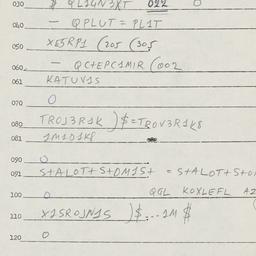 030 $ QL1GN3XT 022 0
040 — QPLUT = PL1T
050 XE5RP1 (205 (305
060 — QCTEPC1MIR (002
061 KATUV1S
070 0
080 TROJ3R1K )$=TROV3R1K8
081 1M1D1K8
090 0
091 S+ALOT+ S+OM1S+ = S+ALOT+S+O
100 0 QGL KOXLEFL A2
110 X1SROJN1S )$... 1M $
120 0